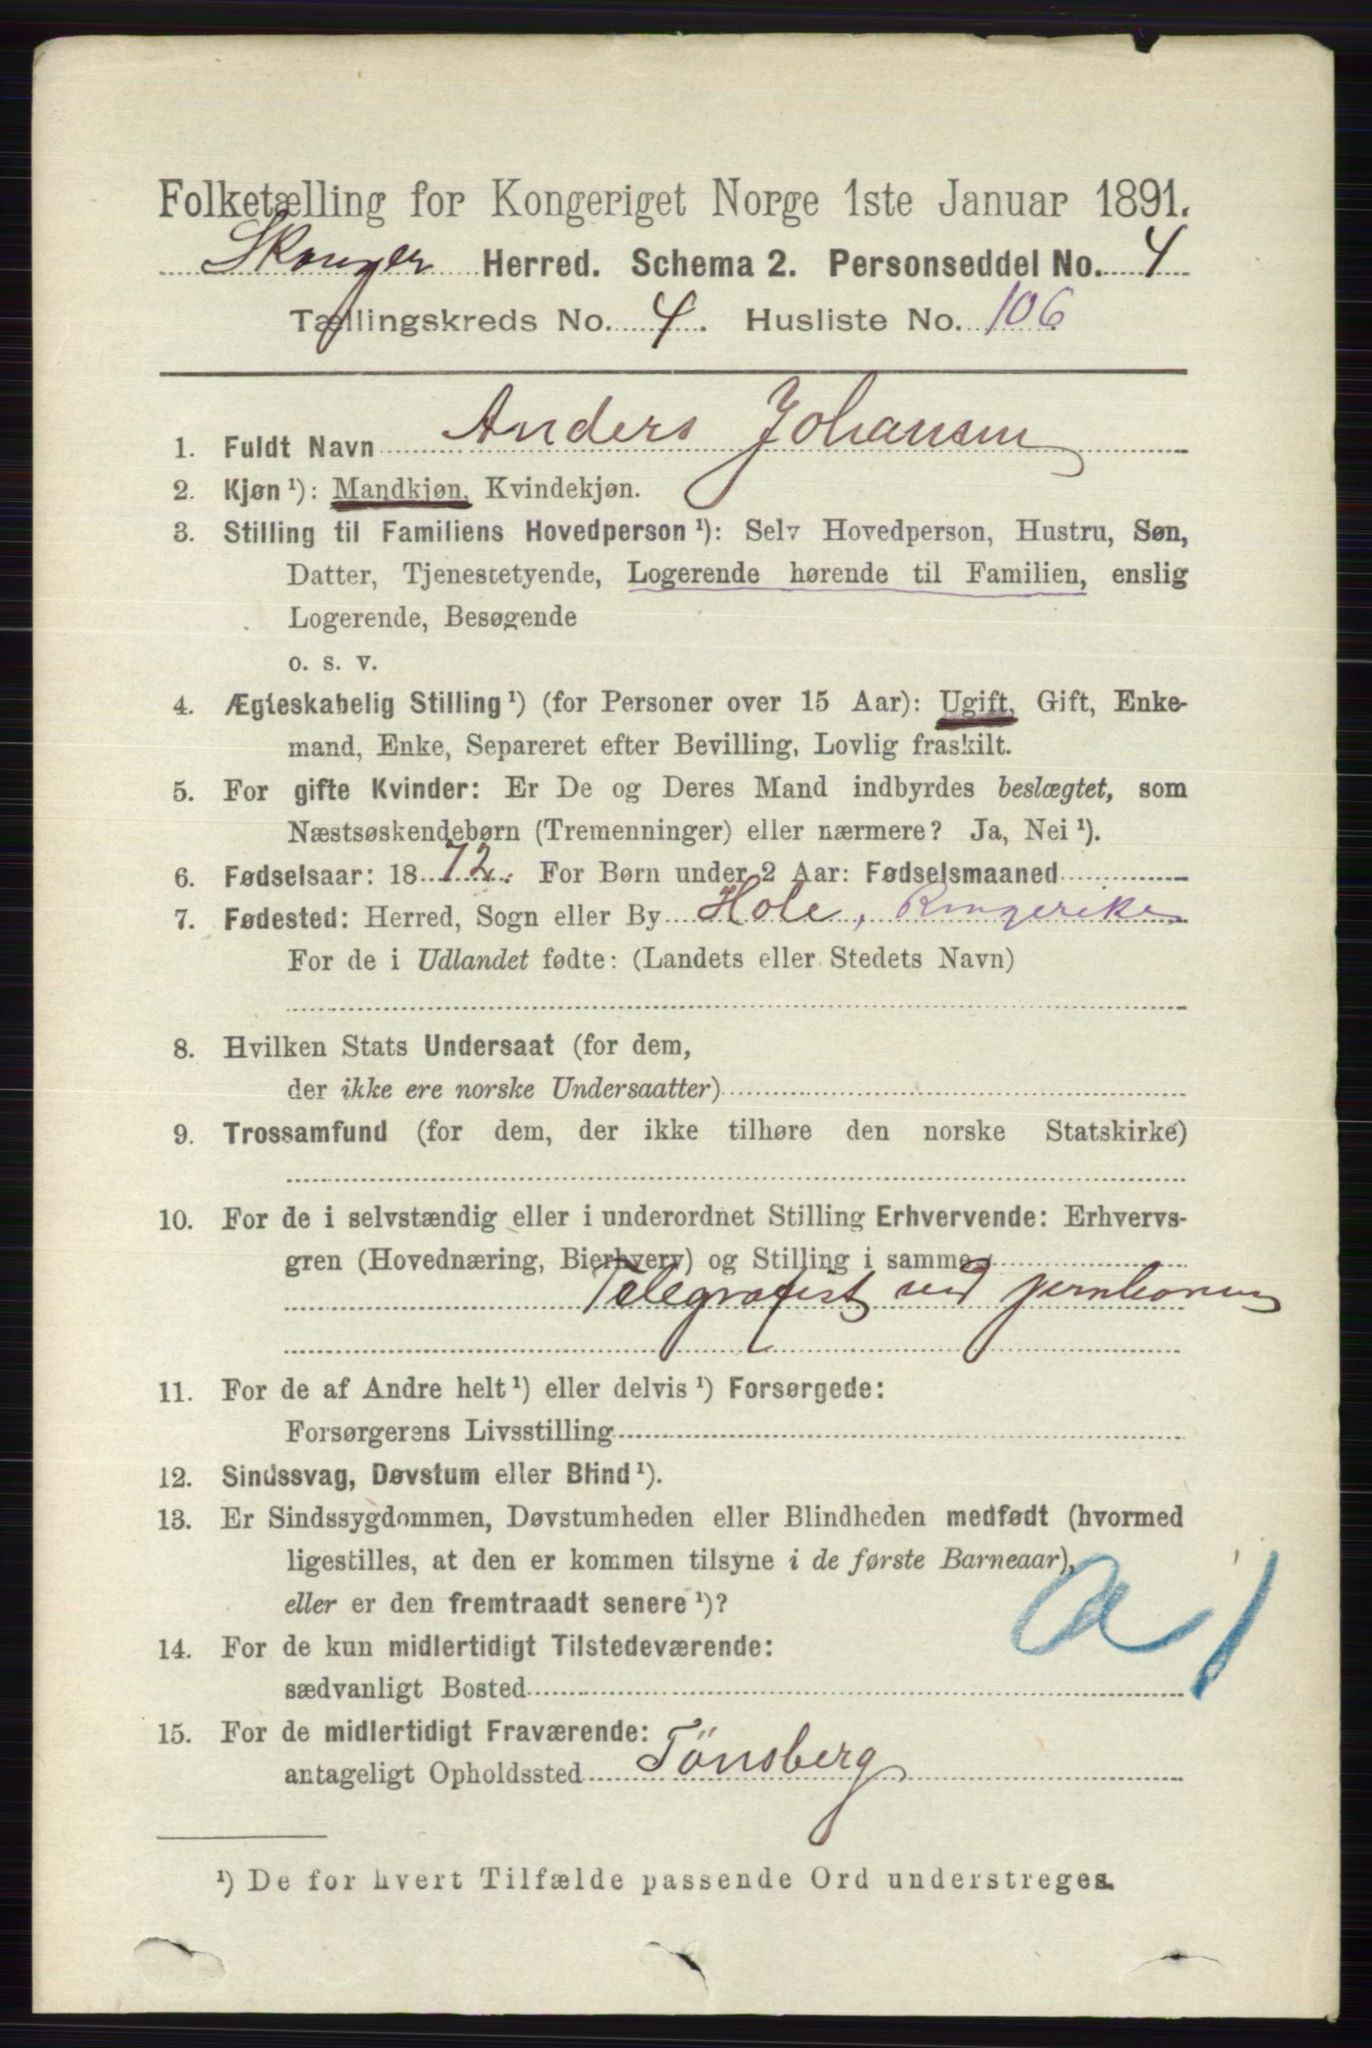 Folketælling for Kongeriget Norge 1ste Januar 1891.
Skouger Herred. Schema 2. Personseddel No. 4
Tællingskreds No. 4. Husliste No. 106
1. Fuldt Navn Anders Johansen
2. Kjøn ¹): Mandkjøn, Kvindekjøn.
3. Stilling til Familiens Hovedperson ¹): Selv Hovedperson, Hustru, Søn,
Datter, Tjenestetyende, Logerende hørende til Familien, enslig
Logerende, Besøgende
o. s. v.
4. Ægteskabelig Stilling ¹) (for Personer over 15 Aar): Ugift, Gift, Enke-
mand, Enke, Separeret efter Bevilling, Lovlig fraskilt.
5. For gifte Kvinder: Er De og Deres Mand indbyrdes beslægtet, som
Næstsøskendebørn (Tremenninger) eller nærmere? Ja, Nei ¹).
6. Fødselsaar: 1872. For Børn under 2 Aar: Fødselsmaaned
7. Fødested: Herred, Sogn eller By Hole, Ringerike
For de i Udlandet fødte: (Landets eller Stedets Navn)
8. Hvilken Stats Undersaat (for dem,
der ikke ere norske Undersaatter)
9. Trossamfund (for dem, der ikke tilhøre den norske Statskirke)
10. For de i selvstændig eller i underordnet Stilling Erhvervende: Erhvervs-
gren (Hovednæring, Bierhverv) og Stilling i samme
Telegrafist ved jernbanen
11. For de af Andre helt ¹) eller delvis ¹) Forsørgede:
Forsørgerens Livsstilling
12. Sindssvag, Døvstum eller Blind ¹).
13. Er Sindssygdommen, Døvstumheden eller Blindheden medfødt (hvormed
ligestilles, at den er kommen tilsyne i de første Barneaar),
eller er den fremtraadt senere ¹)?
14. For de kun midlertidigt Tilstedeværende:
sædvanligt Bosted
15. For de midlertidigt Fraværende:
antageligt Opholdssted Tönsberg
¹) De for hvert Tilfælde passende Ord understreges.